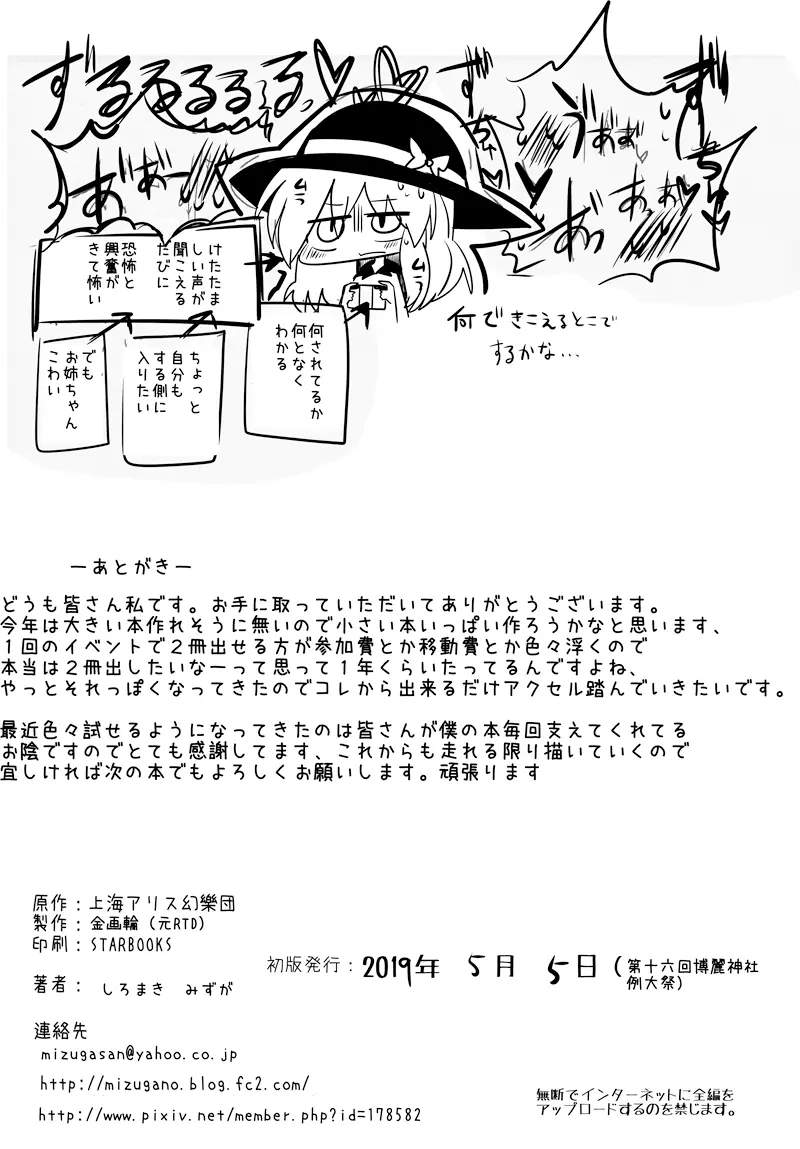 ずるるるるる、♡
ず
ちゃ
うああ゛♡
ず
ちゅ
あぁっ
あ゛ぁーっ
うあ゛ぁーっ
けたたま
しい声が
聞こえる
たびに
恐怖と
興奮が
きて怖い
何されてるか
何となく
わかる
ちょっと
自分も
する側に
入りたい
でも
お姉ちゃん
こわい
何できこえるとこで
するかな...
ーあとがきー
どうも皆さん私です。お手に取っていただいてありがとうございます。
今年は大きい本作れそうに無いので小さい本いっぱい作ろうかなと思います、
1回のイベントで2冊出せる方が参加費とか移動費とか色々浮くので
本当は2冊出したいなーって思って1年くらいたってるんですよね、
やっとそれっぽくなってきたのでコレから出来るだけアクセル踏んでいきたいです。
最近色々試せるようになってきたのは皆さんが僕の本毎回支えてくれてる
お陰ですのでとても感謝してます、これからも走れる限り描いていくので
宜しければ次の本でもよろしくお願いします。頑張ります
原作：上海アリス幻樂団
製作：金画輪（元RTD）
印刷：STARBOOKS
初版発行：2019年 5月 5日（第十六回博麗神社
例大祭）
著者： しろまき みずが
連絡先
mizugasan@yahoo.co.jp
http://mizugano.blog.fc2.com/
http://www.pixiv.net/member.php?id=178582
無断でインターネットに全編を
アップロードするのを禁じます。